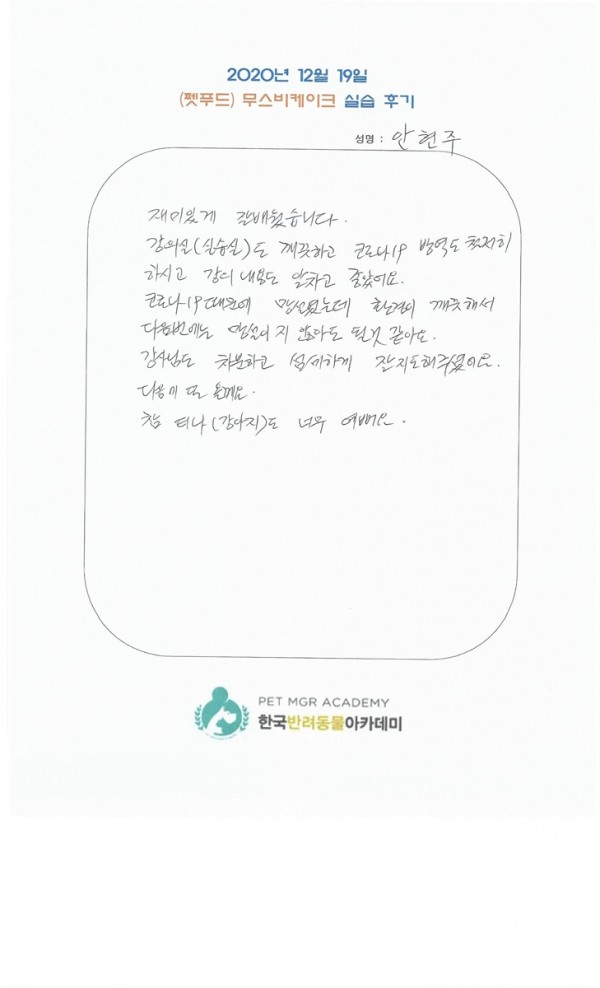 2020년 12월 19일
(펫푸드) 무스비케이크 실습 후기
성명 : 안현주
재미있게 잘배웠습니다.
강의실(실습실)도 깨끗하고 코로나19 방역도 철저히
하시고 강의 내용도 알차고 좋았어요.
코로나19때문에 망설였는데 환경이 깨끗해서
다음번에는 망설이지 않아도 될것 같아요.
강사님도 차분하고 섬세하게 잘지도해주셨어요.
다음에 또 올께요.
참 티나(강아지)도 너무 예뻐요.
PET MGR ACADEMY
한국반려동물아카데미